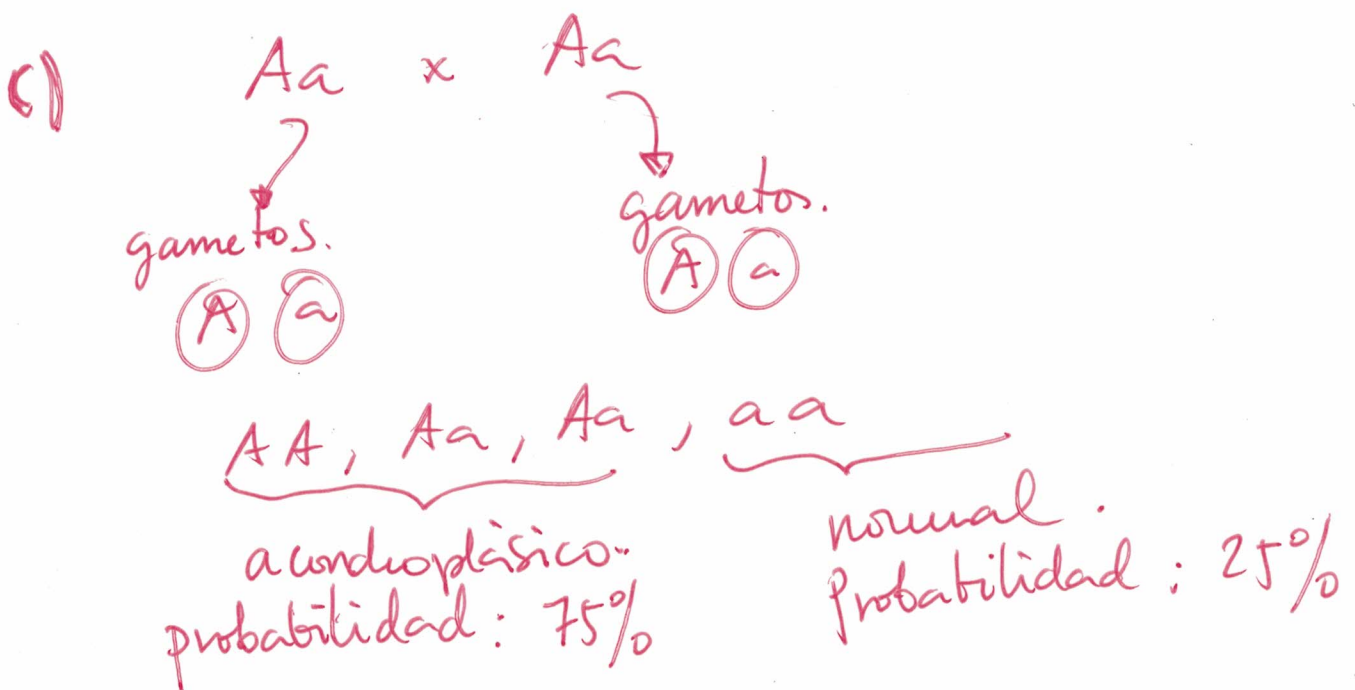 c) Aa x Aa
gametos. gametos.
A a A a
AA, Aa, Aa, aa
acondroplásico.. normal.
probabilidad: 75% Probabilidad: 25%